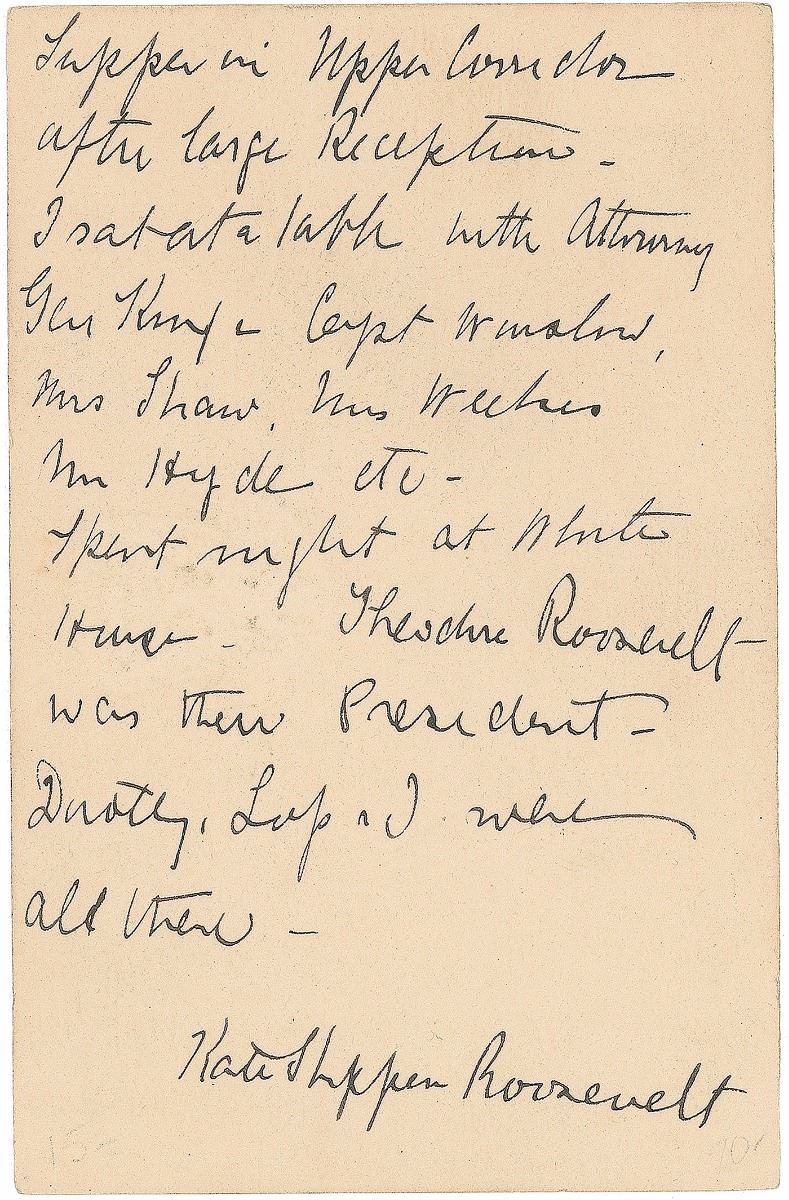 Supper in Upper Corridor
after large Reception -
I sat at a table with Attorney
Gen Knox Capt Winslow,
Mrs Shaw, Mrs Weekes
Mr Hyde etc -
Spent night at White
House - Theodore Roosevelt
was then President -
Dorothy, & I were
all there -
Kate Shippen Roosevelt
15-